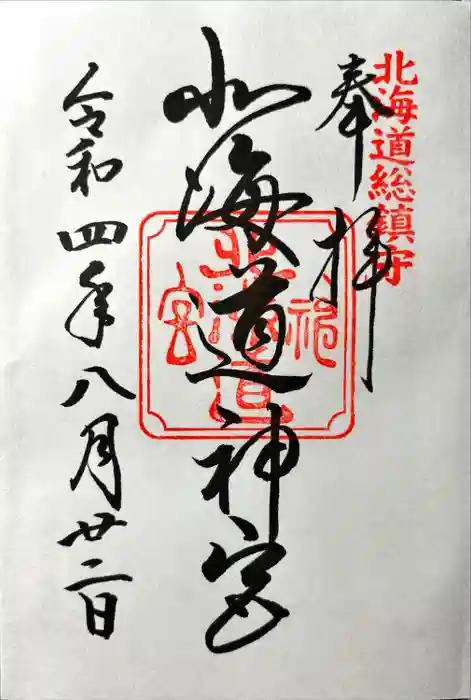 北海道総鎮守
奉拝
北海道神宮
令和四年八月廿二日